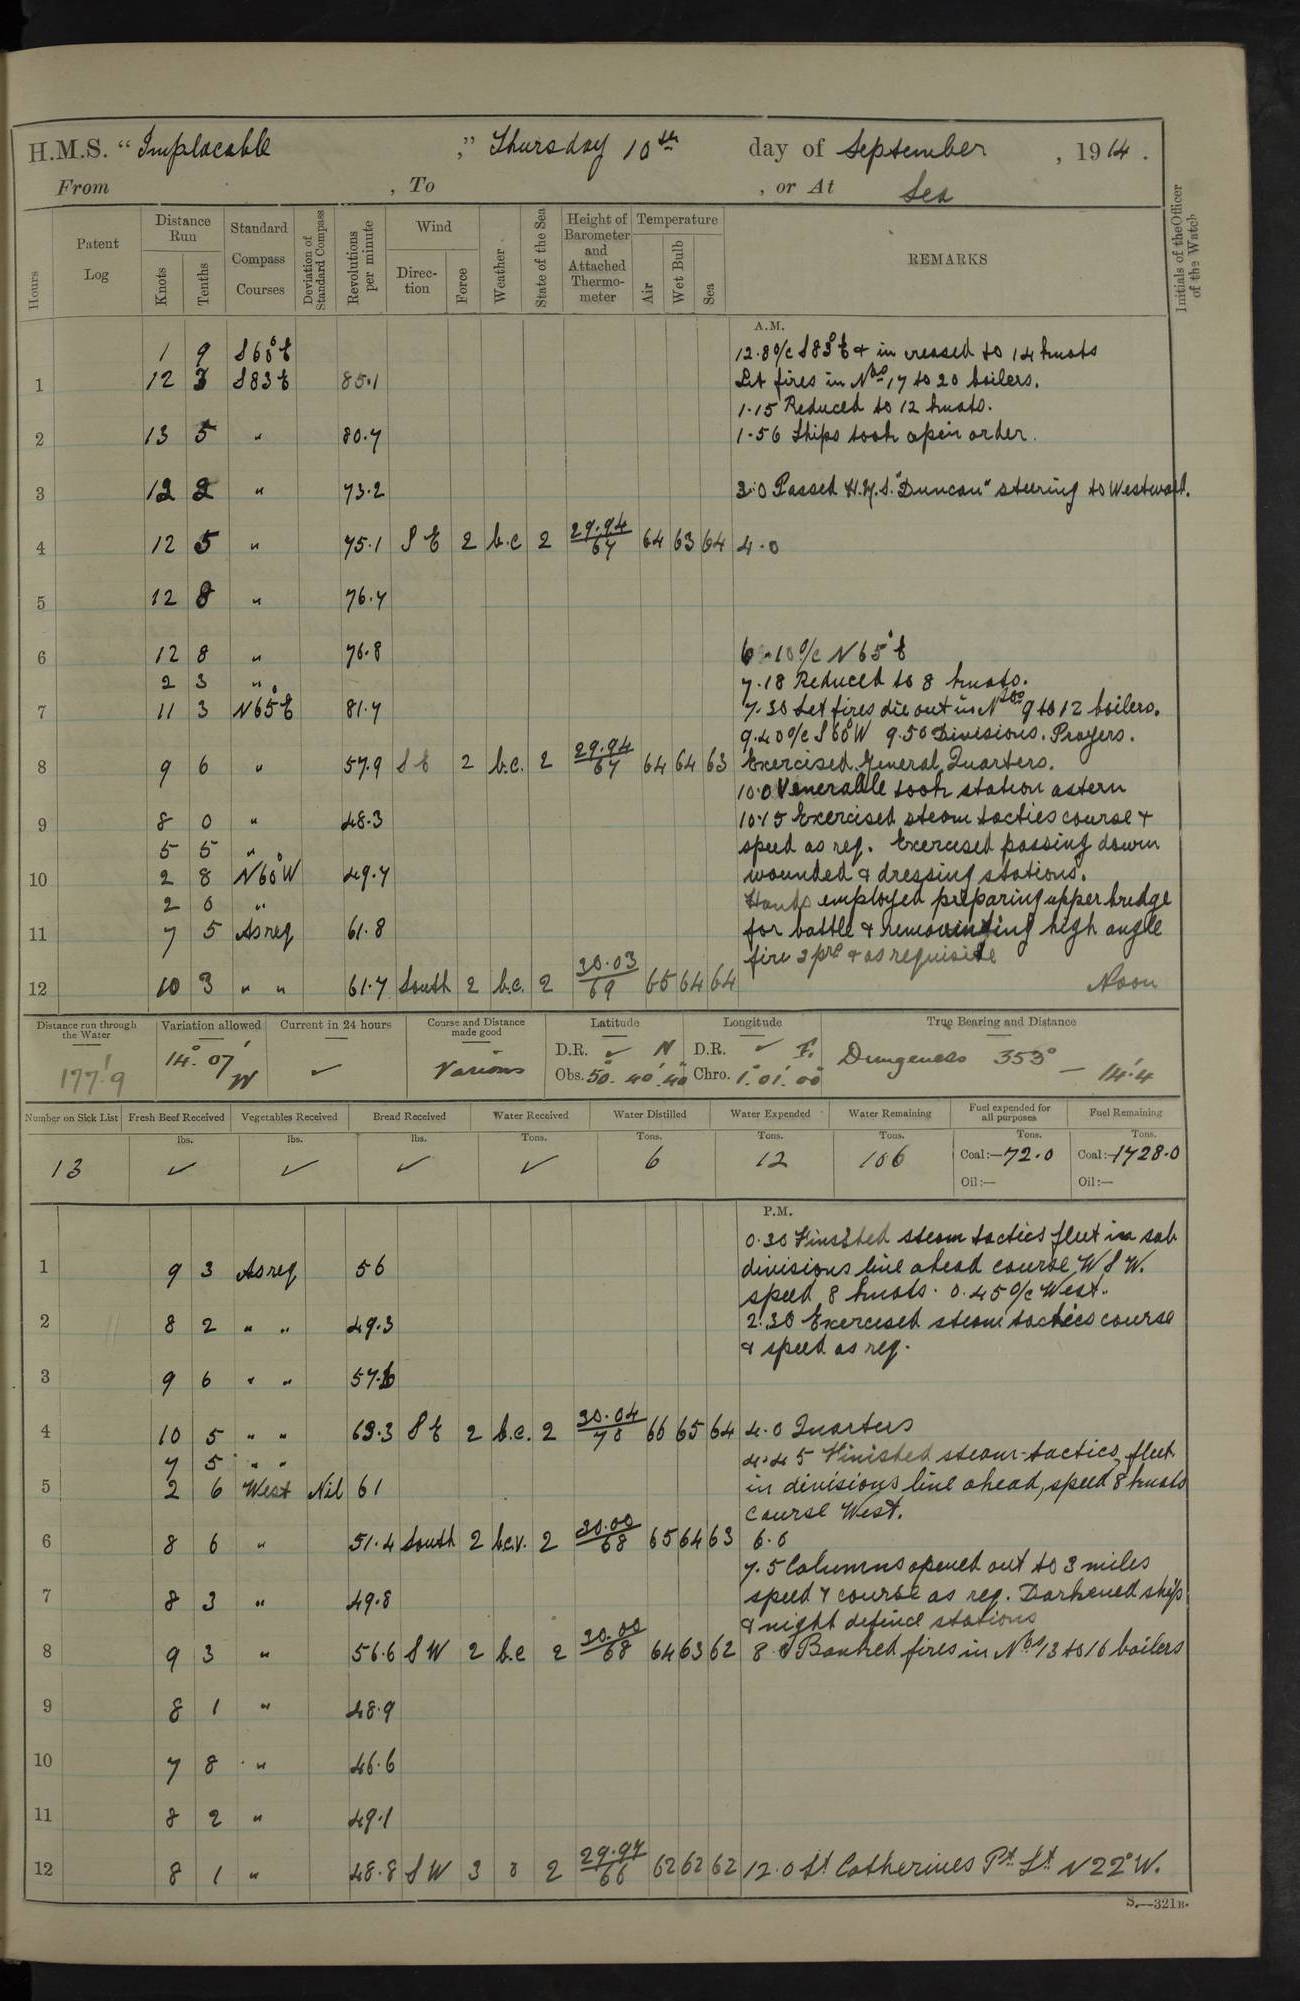 H.M.S. "Implacable," Thursday 10th day of September, 1914.
From , To , or At Sea
Hours
Patent Log
Distance Run
Knots
Tenths
Standard Compass Courses
Deviation of Standard Compass
Revolutions per minute
Wind
Direction
Force
Weather
State of the Sea
Height of Barometer and Attached Thermometer
Temperature
Air
Wet Bulb
Sea
REMARKS
Initials of the Officer of the Watch
A.M.
1 9 S60°E 12.8 o/c S83°E & increased to 14 knots
1 12 3 S83E 85.1 Lit fires in Nos 17 to 20 boilers.
1.15 Reduced to 12 knots.
2 13 5 " 80.7 1.56 Ships took open order.
3 12 2 " 73.2 3.0 Passed H.M.S. "Duncan" steering to Westward.
4 12 5 " 75.1 S E 2 b.c 2 29.94/67 64 63 64 4.0
5 12 8 " 76.7
6 12 8 " 76.8 6.10 o/c N65°E
2 3 " 7.18 Reduced to 8 knots.
7 11 3 N65°E 81.7 7.30 Let fires die out in Nos 9 to 12 boilers.
9.40 o/c S60°W 9.50 Divisions. Prayers.
8 9 6 " 57.9 S E 2 b.c. 2 29.94/67 64 64 63 Exercised General Quarters.
10.0 Venerable took station astern
9 8 0 " 48.3 10.15 Exercised steam tactics course &
5 5 " speed as req. Exercised passing down
10 2 8 N60°W 49.7 wounded & dressing stations.
2 0 " Hands employed preparing upper bridge
11 7 5 As req 61.8 for battle & remounting high angle
fire 3 prs & as requisite
12 10 3 " " 61.7 South 2 b.c. 2 30.03/69 65 64 64 Noon
Distance run through the Water
Variation allowed
Current in 24 hours
Course and Distance made good
Latitude
Longitude
True Bearing and Distance
177.9 14° 07' W ✓ Various D.R. ✓ N D.R. ✓ E. Dungeness 353° — 14.4
Obs. 50° 40' 40 Chro. 1° 01' 00
Number on Sick List
Fresh Beef Received
Vegetables Received
Bread Received
Water Received
Water Distilled
Water Expended
Water Remaining
Fuel expended for all purposes
Fuel Remaining
lbs. lbs. lbs. Tons. Tons. Tons. Tons. Tons. Tons.
13 ✓ ✓ ✓ ✓ 6 12 106 Coal:—72.0 Coal:—1728.0
Oil:— Oil:—
P.M.
0.30 Finished steam tactics fleet in sub
1 9 3 As req 56 divisions line ahead course W S W.
speed 8 knots. 0.45 o/c West.
2 8 2 " " 49.3 2.30 Exercised steam tactics course
& speed as req.
3 9 6 " " 57.6
4 10 5 " " 63.3 S E 2 b.c. 2 30.04/70 66 65 64 4.0 Quarters
7 5 " " 4.45 Finished steam tactics, fleet
5 2 6 West Nil 61 in divisions line ahead, speed 8 knots
course West.
6 8 6 " 51.4 South 2 b.c.v. 2 30.00/68 65 64 63 6.0
7.5 Columns opened out to 3 miles
7 8 3 " 49.8 speed & course as req. Darkened ship
& night defence stations
8 9 3 " 56.6 S W 2 b.c 2 30.00/68 64 63 62 8.0 Banked fires in Nos 13 to 16 boilers
9 8 1 " 48.9
10 7 8 " 46.6
11 8 2 " 49.1
12 8 1 " 48.8 S W 3 o 2 29.97/66 62 62 62 12.0 St Catherines Pt Lt N22°W.
S.—321B.